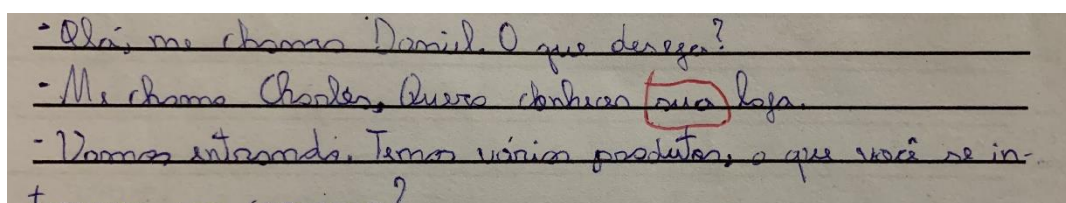 - Olá, me chamo Daniel. O que deseja?
- Me chamo Charles, Quero conhecer sua loja.
- Vamos entrando. Temos vários produtos, o que você se in-
?